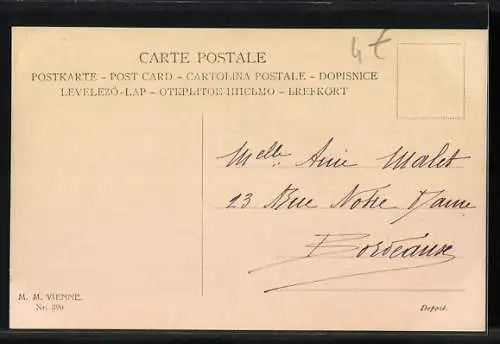 4€
CARTE POSTALE
POSTKARTE - POST CARD - CARTOLINA POSTALE - DOPISNICE
LEVELEZŐ-LAP - ОТКРЫТОЕ ПИСЬМО - BREFKORT
Melle Anie Malet
23 Rue Notre Dame
Bordeaux
M. M. VIENNE.
Nr. 390
Depost.